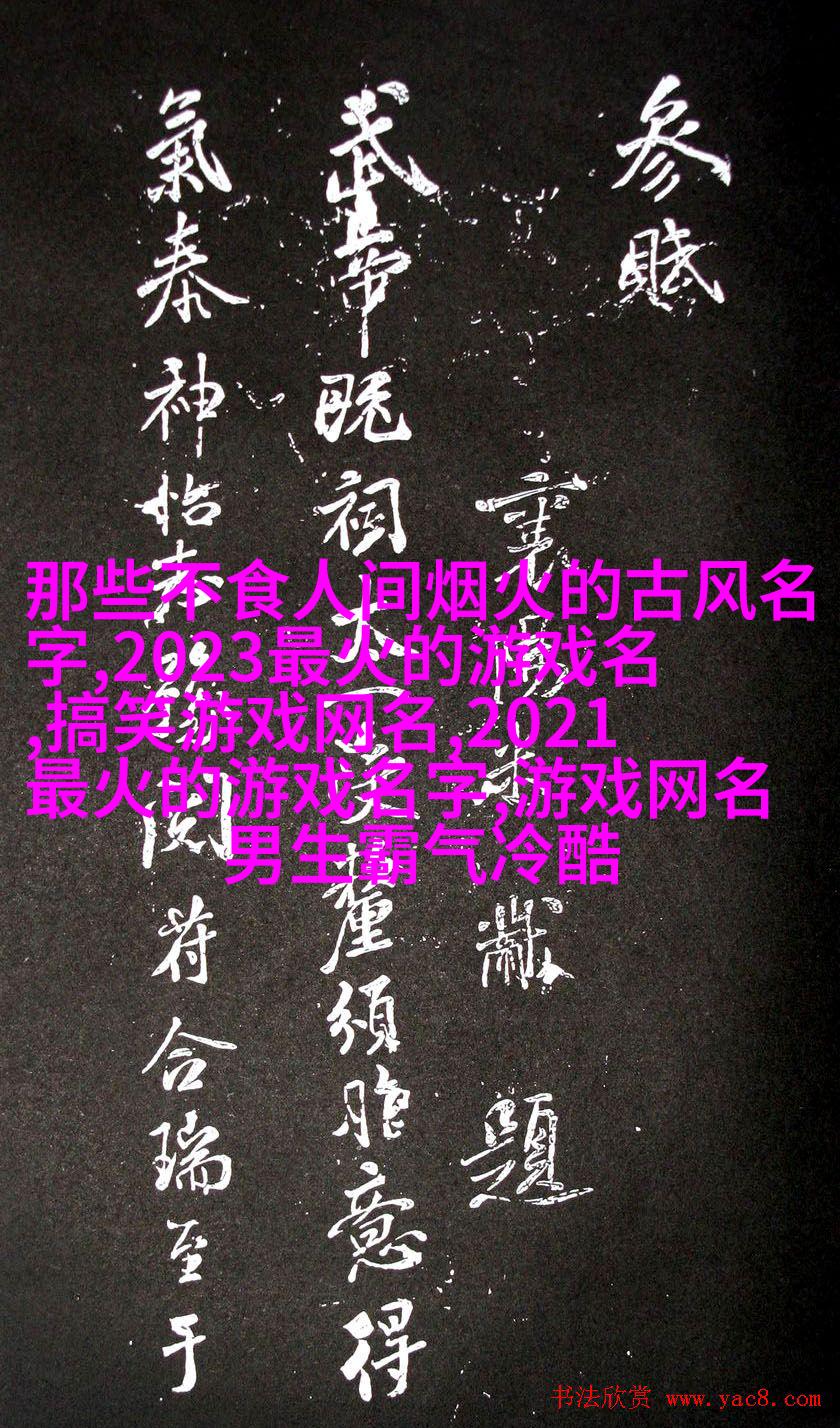 参賦
襄陽米黻題
武帝既祠太一釐頒胙意得
氣泰神怡閱符合瑞至于
那些不食人间烟火的古风名
字,2023最火的游戏名
,搞笑游戏网名,2021
最火的游戏名字,游戏网名
男生霸气冷酷
书法欣赏 www.yac8.com